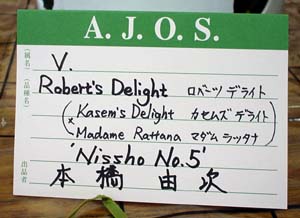 A. J. O. S.
(属名)
V.
(品種名)
Robert's Delight ロバーツ デライト
( Kasem's Delight カセムズ デライト
× Madame Rattana マダム ラッタナ )
'Nissho No.5'
出品者
本橋 由次